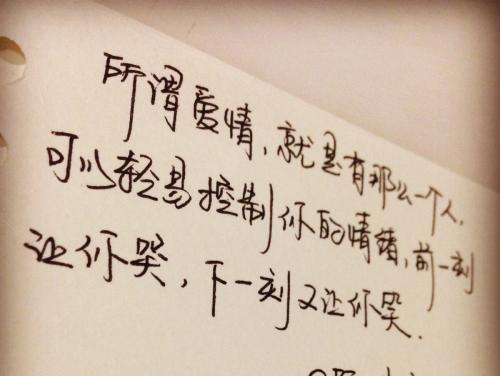 所谓爱情，就是有那么一个人，
可以轻易控制你的情绪，前一刻
让你哭，下一刻又让你哭．